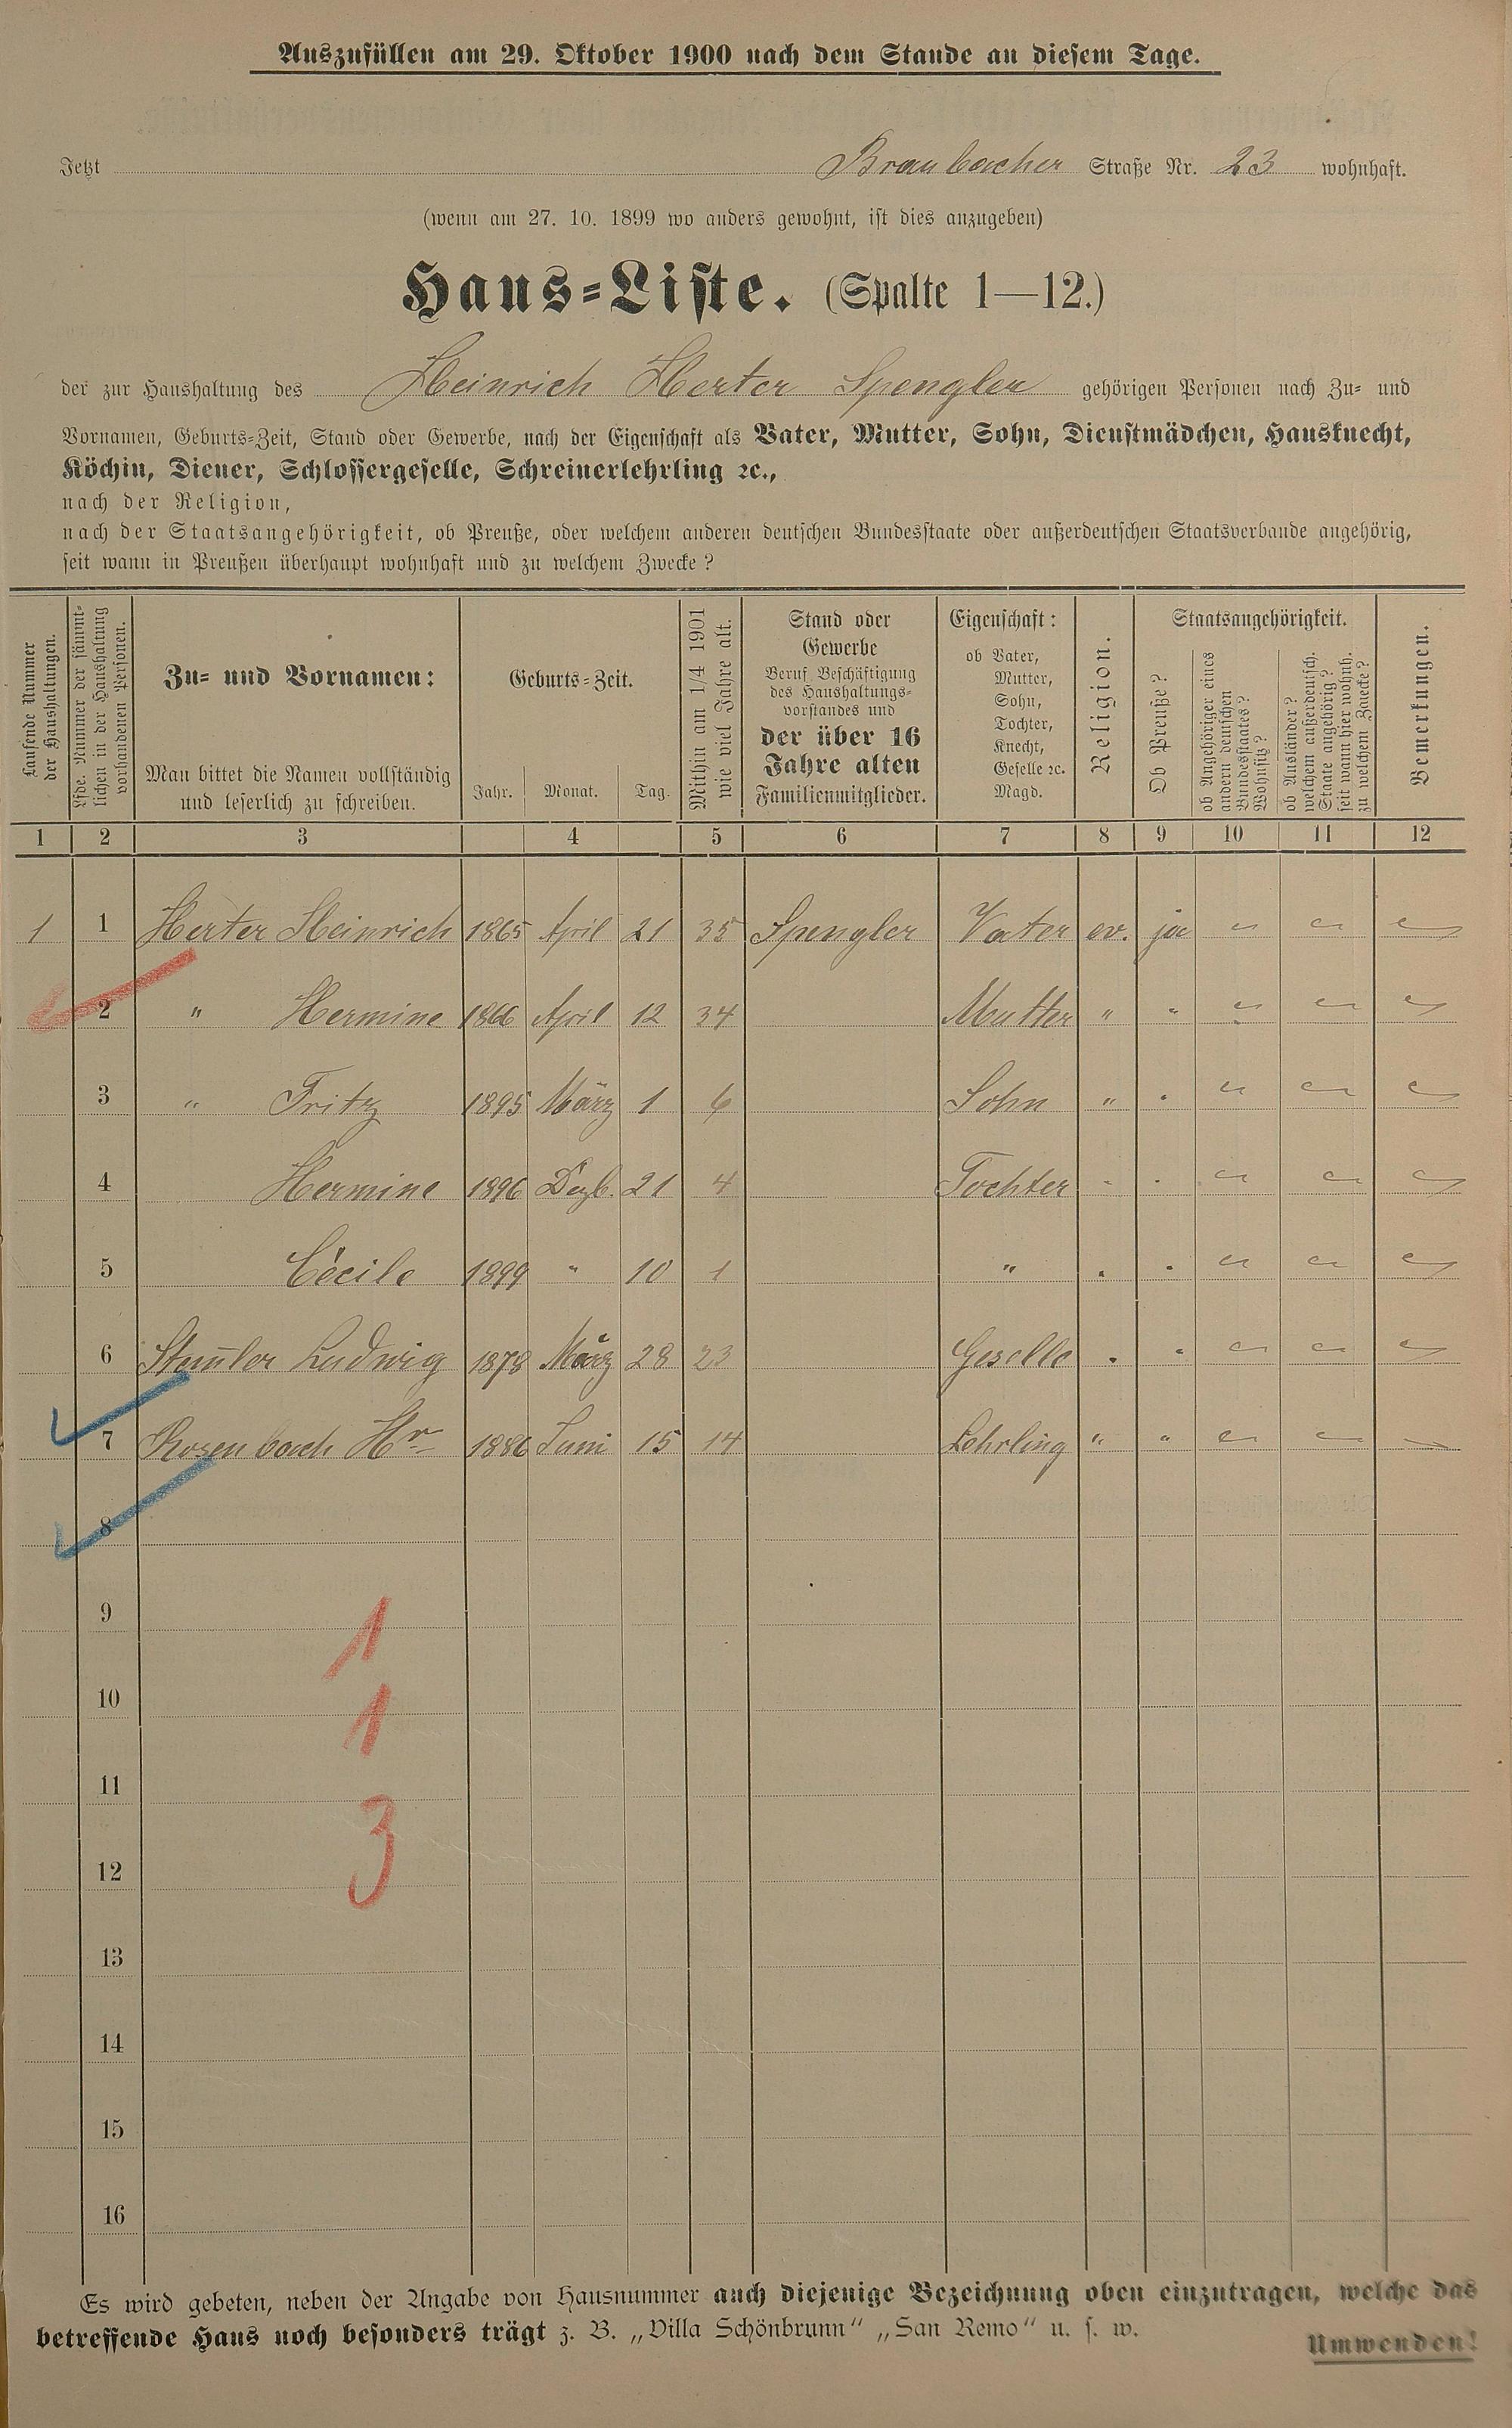 Auszufüllen am 29. Oktober 1900 nach dem Stande an diesem Tage.
Jetzt Braubacher Straße Nr. 23 wohnhaft.
(wenn am 27. 10. 1899 wo anders gewohnt, ist dies anzugeben)
Haus-Liste. (Spalte 1—12.)
der zur Haushaltung des Heinrich Herter Spengler gehörigen Personen nach Zu- und
Vornamen, Geburts-Zeit, Stand oder Gewerbe, nach der Eigenschaft als Vater, Mutter, Sohn, Dienstmädchen, Hausknecht,
Köchin, Diener, Schlossergeselle, Schreinerlehrling ꝛc.,
nach der Religion,
nach der Staatsangehörigkeit, ob Preuße, oder welchem anderen deutschen Bundesstaate oder außerdeutschen Staatsverbande angehörig,
seit wann in Preußen überhaupt wohnhaft und zu welchem Zwecke?
Laufende Nummer
der Haushaltungen.
Lfde. Nummer der sämmt-
lichen in der Haushaltung
vorhandenen Personen.
Zu- und Vornamen:
Man bittet die Namen vollständig
und leserlich zu schreiben.
Geburts-Zeit.
Jahr. Monat. Tag.
Mithin am 1/4 1901
wie viel Jahre alt.
Stand oder
Gewerbe
Beruf Beschäftigung
des Haushaltungs-
vorstandes und
der über 16
Jahre alten
Familienmitglieder.
Eigenschaft:
ob Vater,
Mutter,
Sohn,
Tochter,
Knecht,
Geselle ꝛc.
Magd.
Religion.
Staatsangehörigkeit.
Ob Preuße?
ob Angehöriger eines
andern deutschen
Bundesstaates?
Wohnsitz?
ob Ausländer?
welchem außerdeutsch.
Staate angehörig?
seit wann hier wohnh.
zu welchem Zwecke?
Bemerkungen.
1 2 3 4 5 6 7 8 9 10 11 12
1 1 Herter Heinrich 1865 April 21 35 Spengler Vater ev. ja
2 " Hermine 1866 April 12 34 Mutter " "
3 " Fritz 1895 März 1 6 Sohn " "
4 Hermine 1896 Dezb. 21 4 Tochter " "
5 Cécile 1899 " 10 1 " " "
6 Stem̅ler Ludwig 1878 März 28 23 Geselle " "
7 Rosenbach Hr 1886 Juni 15 14 Lehrling " "
8
9
1
10
1
11
3
12
13
14
15
16
Es wird gebeten, neben der Angabe von Hausnummer auch diejenige Bezeichnung oben einzutragen, welche das
betreffende Haus noch besonders trägt z. B. „Villa Schönbrunn“ „San Remo“ u. s. w.
Umwenden!